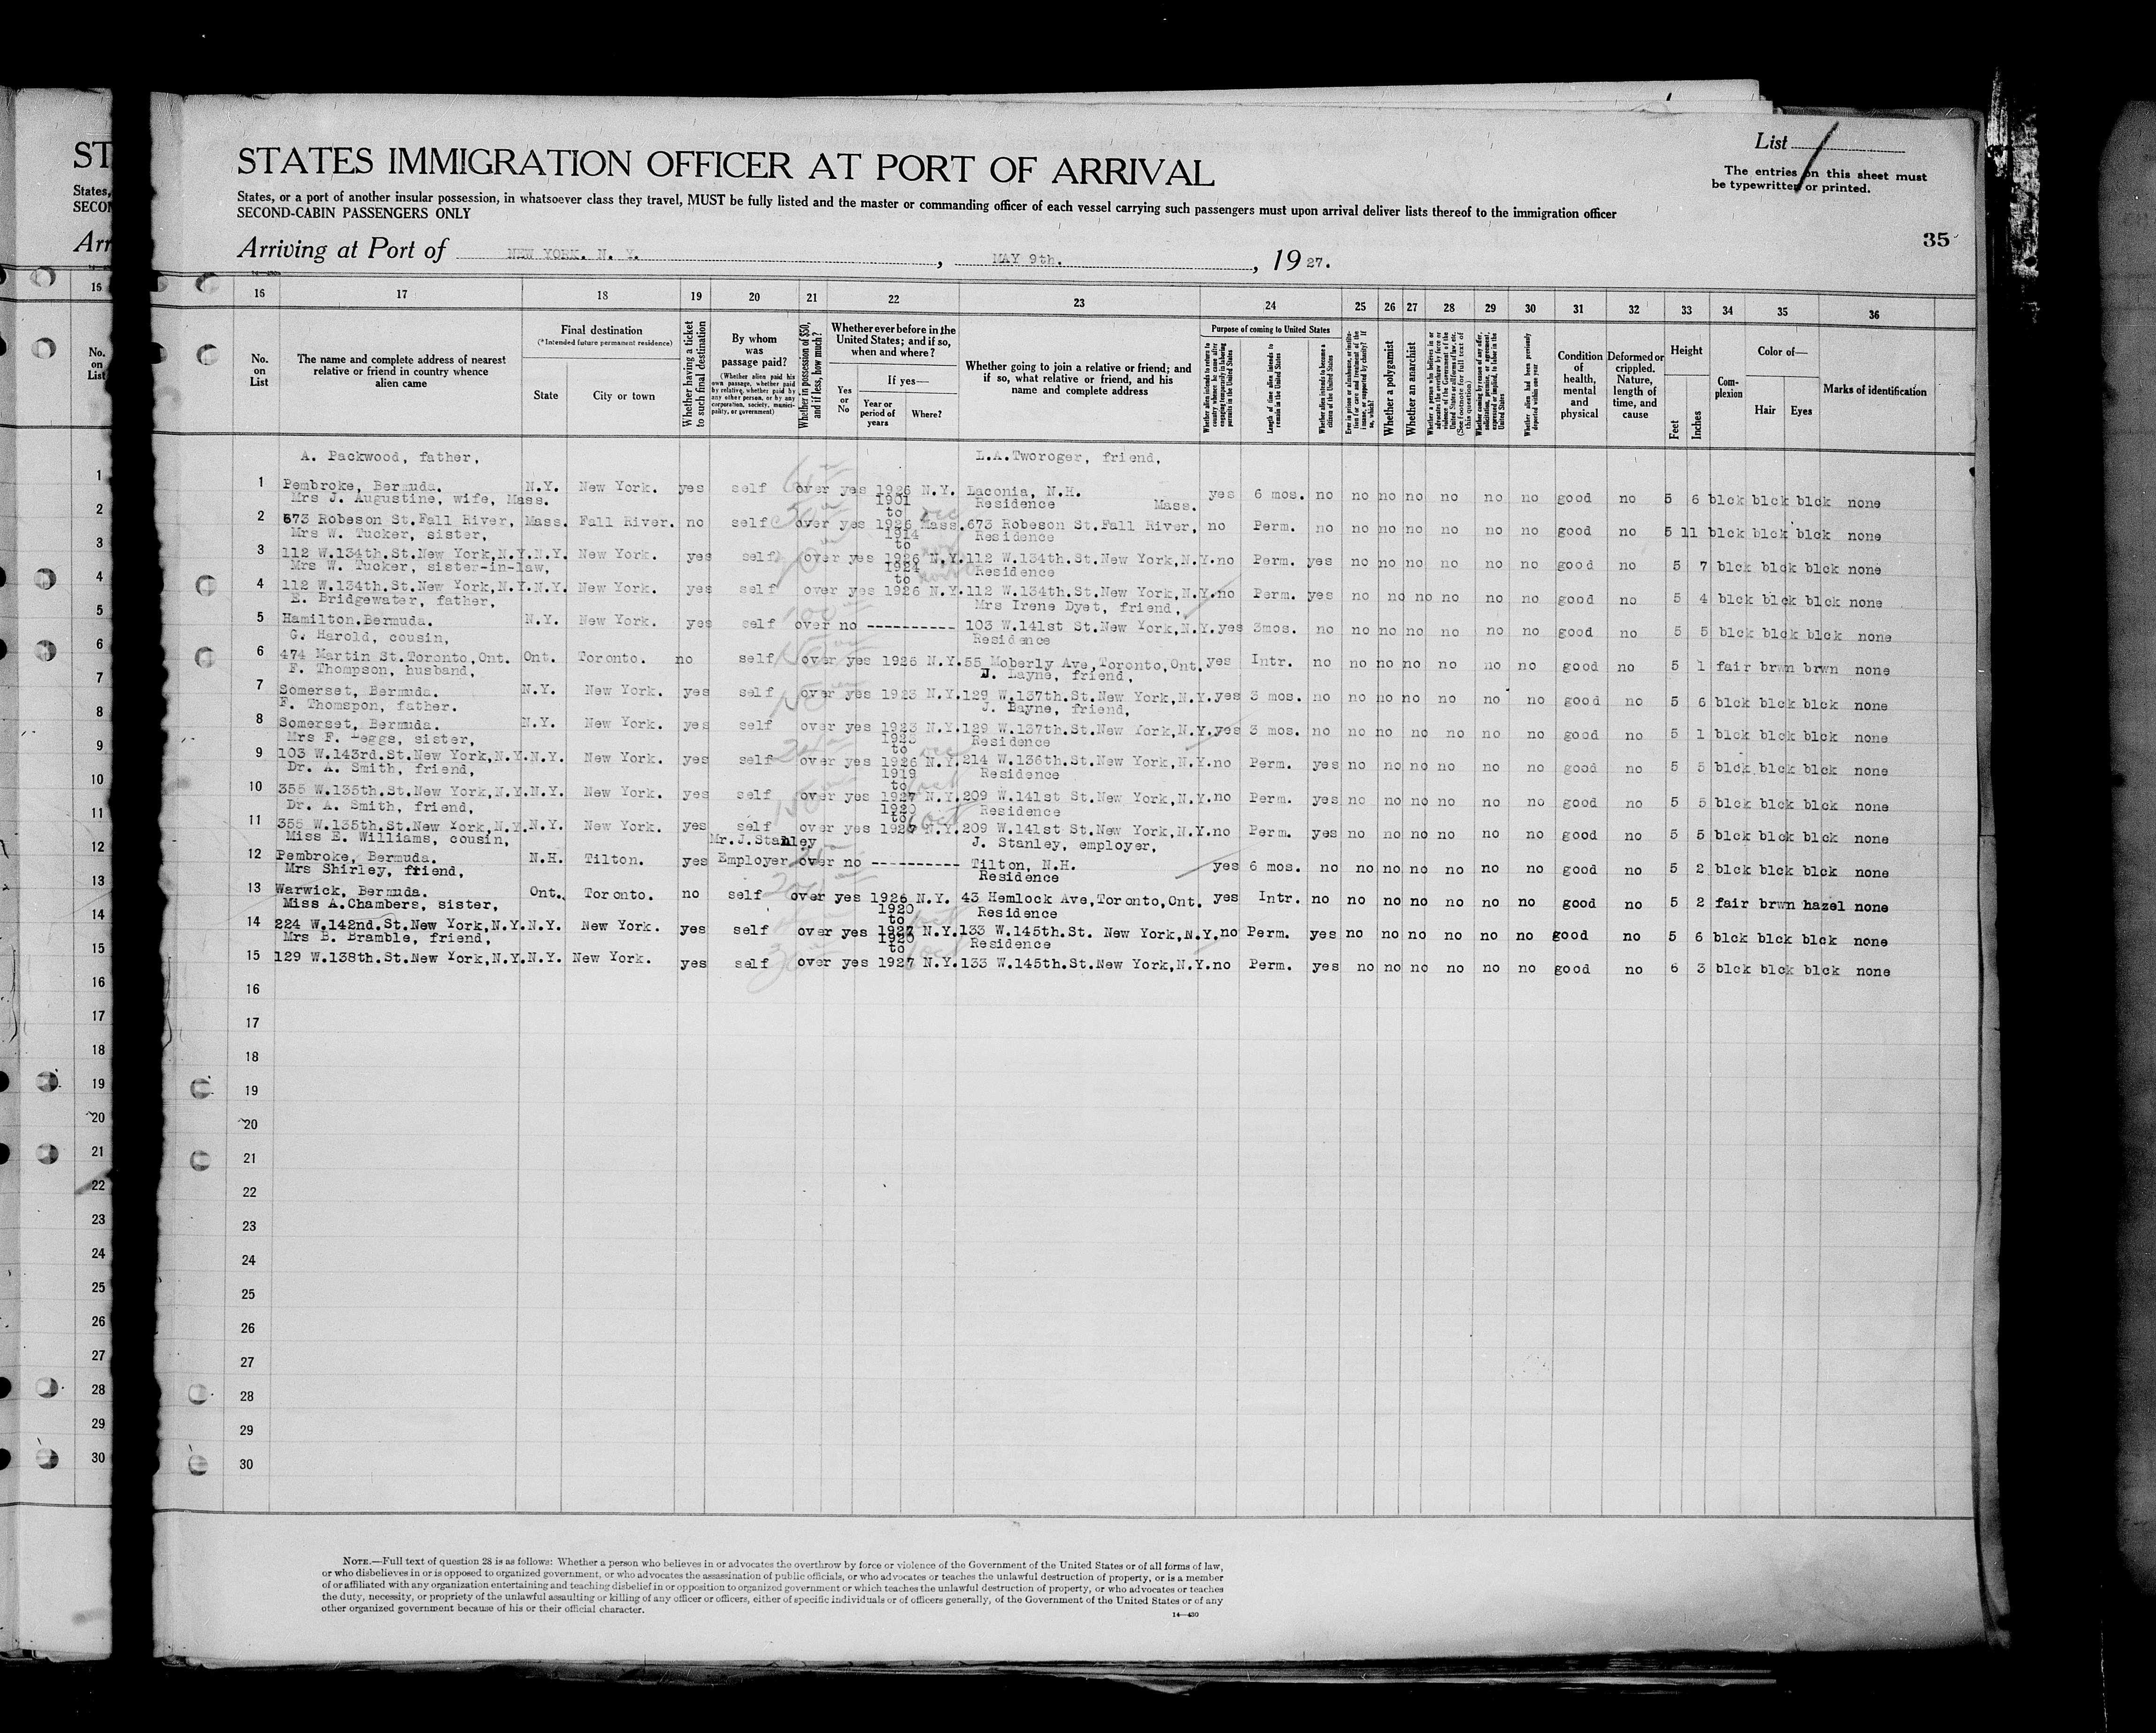 List
The entries on this sheet must
be typewritten or printed.
STATES IMMIGRATION OFFICER AT PORT OF ARRIVAL
States, or a port of another insular possession, in whatsoever class they travel, MUST be fully listed and the master or commanding officer of each vessel carrying such passengers must upon arrival deliver lists thereof to the immigration officer
SECOND-CABIN PASSENGERS ONLY
35
Arriving at Port of NEW YORK. N. Y. , MAY 9th. , 19 27.
16 17 18 19 20 21 22 23 24 25 26 27 28 29 30 31 32 33 34 35 36
No. on List
The name and complete address of nearest relative or friend in country whence alien came
Final destination
(*Intended future permanent residence)
State
City or town
Whether having a ticket to such final destination
By whom was passage paid?
(Whether alien paid his own passage, whether paid by relative, whether paid by any other person, or by any corporation, society, municipality, or government)
Whether in possession of $50, and if less, how much?
Whether ever before in the United States; and if so, when and where?
Yes or No
If yes—
Year or period of years
Where?
Whether going to join a relative or friend; and if so, what relative or friend, and his name and complete address
Purpose of coming to United States
Length of time alien intends to remain in the United States
Whether alien intends to become a citizen of the United States
Whether a polygamist
Whether an anarchist
Condition of health, mental and physical
Deformed or crippled. Nature, length of time, and cause
Height
Feet
Inches
Complexion
Color of—
Hair
Eyes
Marks of identification
A. Packwood, father, L.A.Tworoger, friend,
1 Pembroke, Bermuda. N.Y. New York. yes self over yes 1926 N.Y. Laconia, N.H. yes 6 mos. no no no no no no no good no 5 6 blck blck blck none
Mrs J. Augustine, wife, Mass. 1901 to Residence Mass.
2 673 Robeson St.Fall River, Mass. Fall River. no self over yes 1926 Mass. 673 Robeson St.Fall River, no Perm. no no no no no no no good no 5 11 blck blck blck none
Mrs W. Tucker, sister, 1914 to Residence
3 112 W.134th.St.New York,N.Y. N.Y. New York. yes self over yes 1926 N.Y. 112 W.134th.St.New York,N.Y. no Perm. yes no no no no no no good no 5 7 blck blck blck none
Mrs W. Tucker, sister-in-law, 1924 to Residence
4 112 W.134th.St.New York,N.Y. N.Y. New York. yes self over yes 1926 N.Y. 112 W.134th.St.New York,N.Y. no Perm. yes no no no no no no good no 5 4 blck blck blck none
E. Bridgewater, father, Mrs Irene Dyet, friend,
5 Hamilton.Bermuda. N.Y. New York. yes self over no ---------- 103 W.141st St.New York,N.Y. yes 3mos. no no no no no no no good no 5 5 blck blck blck none
G. Harold, cousin, Residence
6 474 Martin St.Toronto,Ont. Ont. Toronto. no self over yes 1925 N.Y. 55 Moberly Ave,Toronto,Ont. yes Intr. no no no no no no no good no 5 1 fair brwn brwn none
F. Thompson, husband, J. Layne, friend,
7 Somerset, Bermuda. N.Y. New York. yes self over yes 1923 N.Y. 129 W.137th.St.New York,N.Y. yes 3 mos. no no no no no no no good no 5 6 blck blck blck none
F. Thomspon, father. J. Bayne, friend,
8 Somerset, Bermuda. N.Y. New York. yes self over yes 1923 N.Y. 129 W.137th.St.New York,N.Y. yes 3 mos. no no no no no no no good no 5 1 blck blck blck none
Mrs F. Peggs, sister, 1923 to Residence
9 103 W.143rd.St.New York,N.Y. N.Y. New York. yes self over yes 1926 N.Y. 214 W.136th.St.New York,N.Y. no Perm. yes no no no no no no good no 5 5 blck blck blck none
Dr. A. Smith, friend, 1919 to Residence
10 355 W.135th.St.New York,N.Y. N.Y. New York. yes self over yes 1927 N.Y. 209 W.141st St.New York,N.Y. no Perm. yes no no no no no no good no 5 5 blck blck blck none
Dr. A. Smith, friend, 1920 to Residence
11 355 W.135th.St.New York,N.Y. N.Y. New York. yes self over yes 1926 N.Y. 209 W.141st St.New York,N.Y. no Perm. yes no no no no no no good no 5 5 blck blck blck none
Miss E. Williams, cousin, Mr.J.Stanley J. Stanley, employer,
12 Pembroke, Bermuda. N.H. Tilton. yes Employer over no ---------- Tilton, N.H. yes 6 mos. no no no no no no no good no 5 2 blck blck blck none
Mrs Shirley, friend, Residence
13 Warwick, Bermuda. Ont. Toronto. no self over yes 1926 N.Y. 43 Hemlock Ave,Toronto,Ont. yes Intr. no no no no no no no good no 5 2 fair brwn hazel none
Miss A.Chambers, sister, 1920 to Residence
14 224 W.142nd.St.New York,N.Y. N.Y. New York. yes self over yes 1927 N.Y. 133 W.145th.St. New York,N.Y. no Perm. yes no no no no no no good no 5 6 blck blck blck none
Mrs B. Bramble, friend, 1920 to Residence
15 129 W.138th.St.New York,N.Y. N.Y. New York. yes self over yes 1927 N.Y. 133 W.145th.St.New York,N.Y. no Perm. yes no no no no no no good no 6 3 blck blck blck none
16
17
18
19
20
21
22
23
24
25
26
27
28
29
30
NOTE.—Full text of question 28 is as follows: Whether a person who believes in or advocates the overthrow by force or violence of the Government of the United States or of all forms of law,
or who disbelieves in or is opposed to organized government, or who advocates the assassination of public officials, or who advocates or teaches the unlawful destruction of property, or is a member
of or affiliated with any organization entertaining and teaching disbelief in or opposition to organized government or which teaches the unlawful destruction of property, or who advocates or teaches
the duty, necessity, or propriety of the unlawful assaulting or killing of any officer or officers, either of specific individuals or of officers generally, of the Government of the United States or of any
other organized government because of his or their official character.
14—430